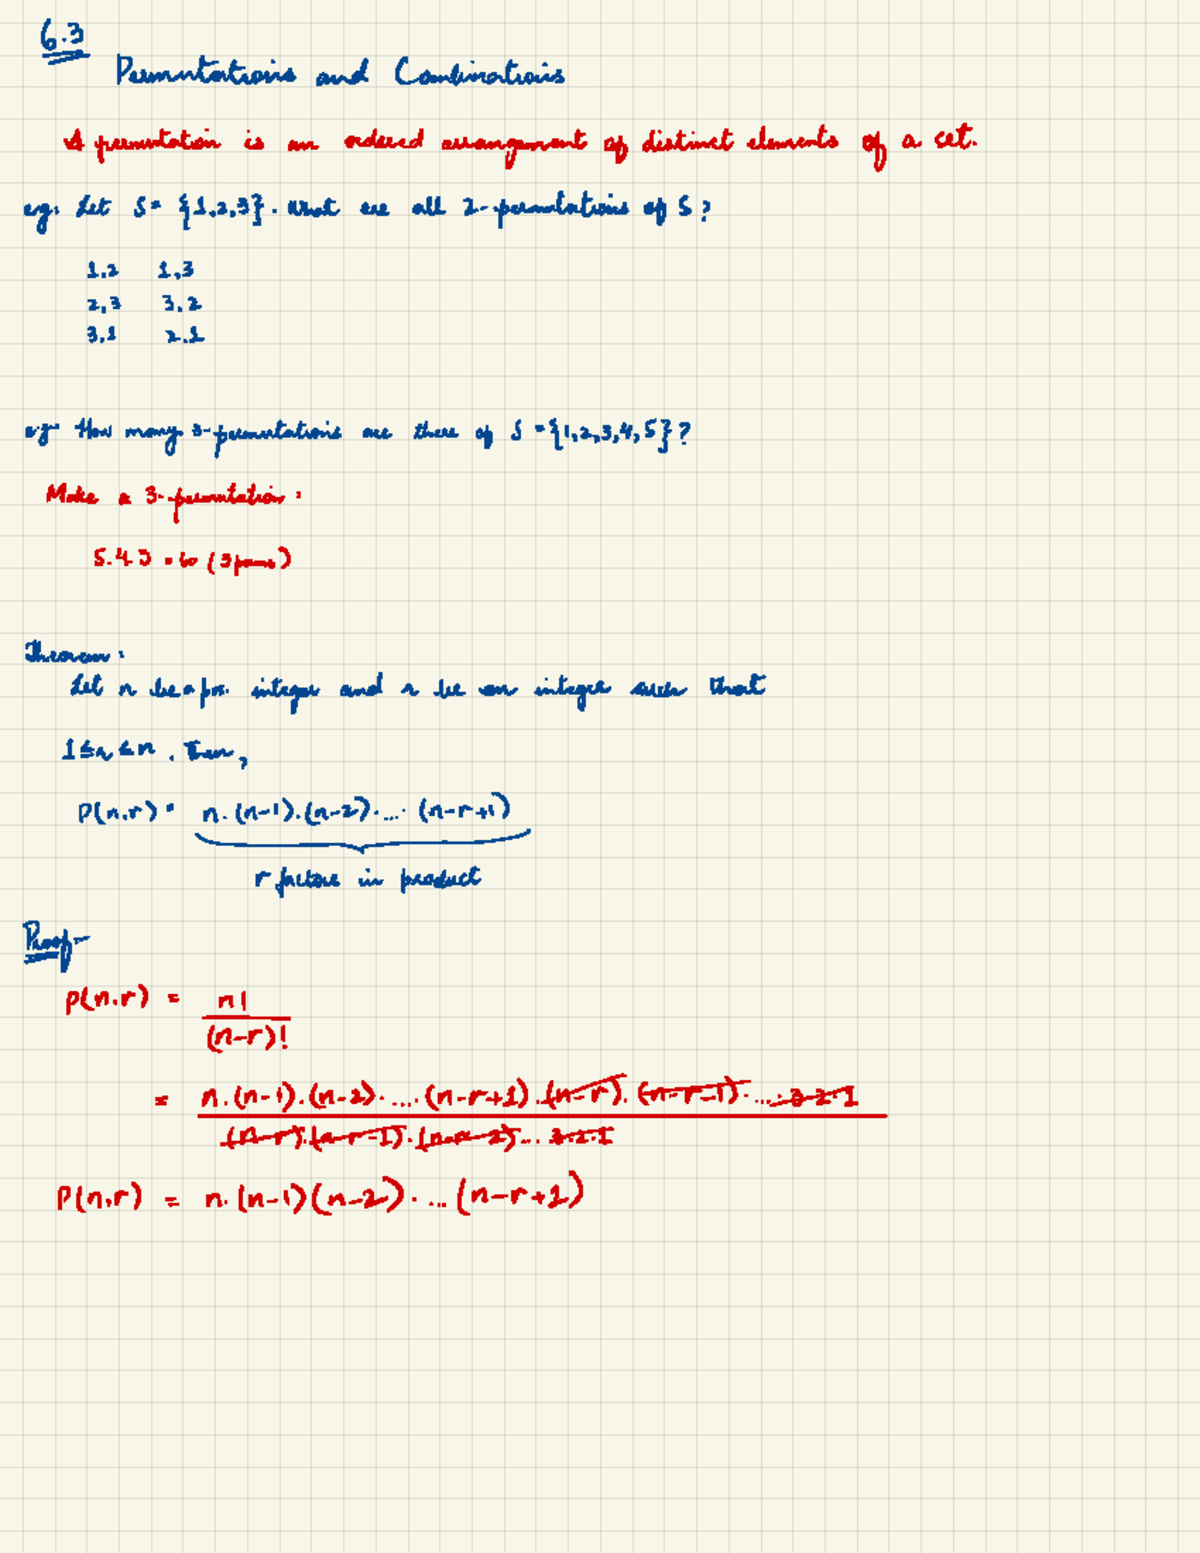 6.3
Permutations and Combinations
A permutation is an ordered arrangement of distinct elements of a set.
eg: Let S = {1,2,3}. What are all 2-permutations of S?
1,2 1,3
2,3 3,2
3,1 2,1
eg: How many 3-permutations are there of S = {1,2,3,4,5}?
Make a 3-permutation:
5.4.3 = 60 (3 perms)
Theorem:
Let n be a pos. integer and r be an integer such that
1 ≤ r ≤ n. Then,
P(n,r) = n.(n-1).(n-2)·...·(n-r+1)
r factors in product
Proof-
P(n,r) = n!
(n-r)!
= n.(n-1).(n-2)·...·(n-r+1).(n-r).(n-r-1)·...·3·2·1
(n-r).(n-r-1).(n-r-2)...3.2.1
P(n,r) = n.(n-1)(n-2)·...(n-r+1)